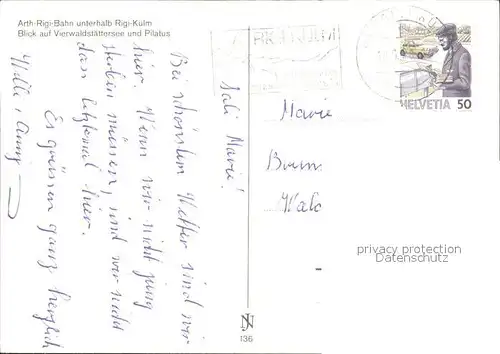 Arth-Rigi-Bahn unterhalb Rigi-Kulm
Blick auf Vierwaldstättersee und Pilatus
Sali Marie!
Bei schönstem Wetter sind wir
hier. Wenn wir nicht jung
sterben müssen, sind wir nicht
das letztemal hier.
Es grüssen ganz herzlich
Willi + Anny
RIGI KULM
HELVETIA 50
Marie
Wald
privacy protection
Datenschutz
136